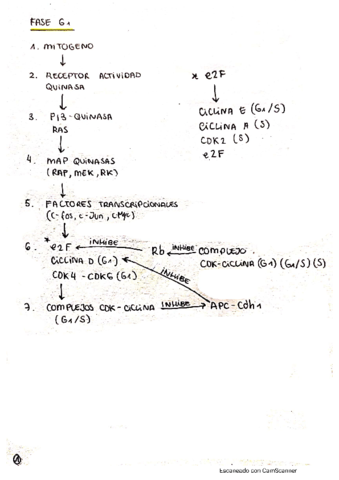 FASE G1
1. MITOGENO
2. RECEPTOR ACTIVIDAD
QUINASA
3. PI3-QUINASA
RAS
4. MAP QUINASAS
(RAP, MEK, RK)
5. FACTORES TRANSCRIPCIONALES
(C-fos, c-Jun, CMyc)
6. * e2F INHIBE Rb INHIBE COMPLEJO
CICLINA D (G1) CDK-CICLINA (G1) (G1/S) (S)
CDK4 - CDK6 (G1) INHIBE
7. COMPLEJOS CDK-CICLINA INHIBE APC-Cdh1
(G1/S)
* e2F
CICLINA E (G1/S)
CICLINA A (S)
CDK2 (S)
e2F
Escaneado con CamScanner